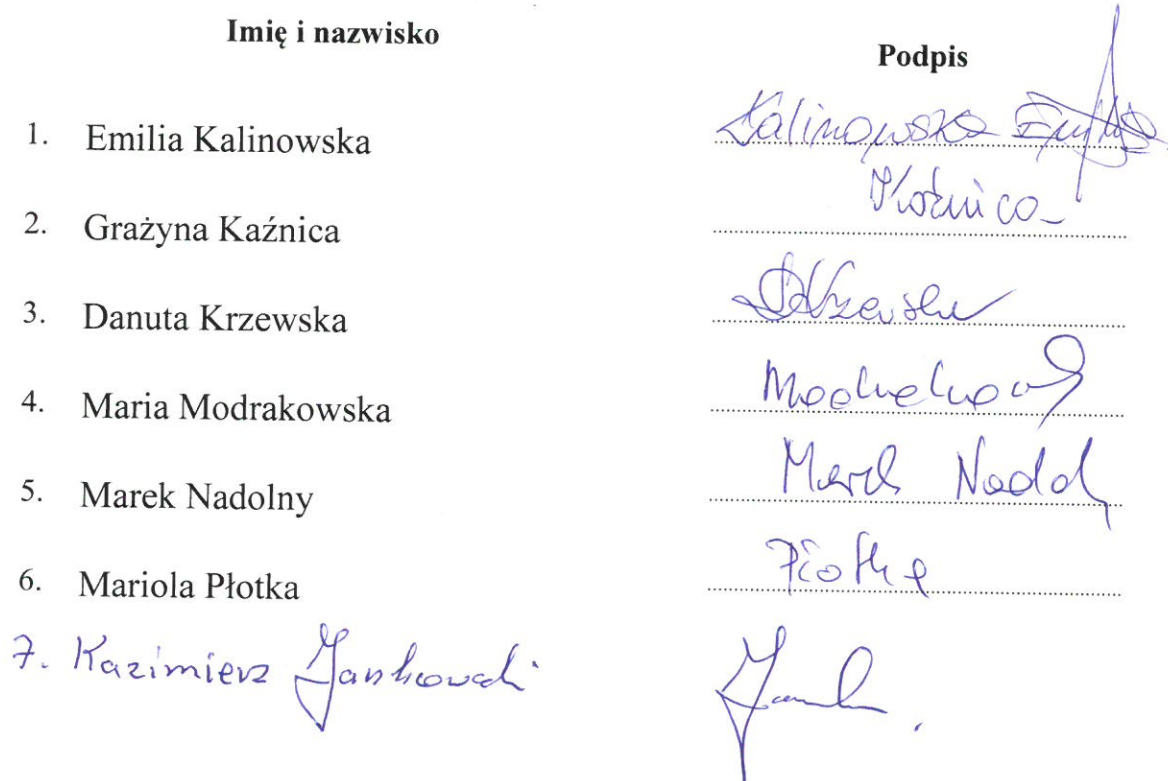 Imię i nazwisko
Podpis
1. Emilia Kalinowska Kalinowska
2. Grażyna Kaźnica Kaźnica
3. Danuta Krzewska DKrzewska
4. Maria Modrakowska
5. Marek Nadolny Marek
6. Mariola Płotka Płotka
7. Kazimierz Jankowski